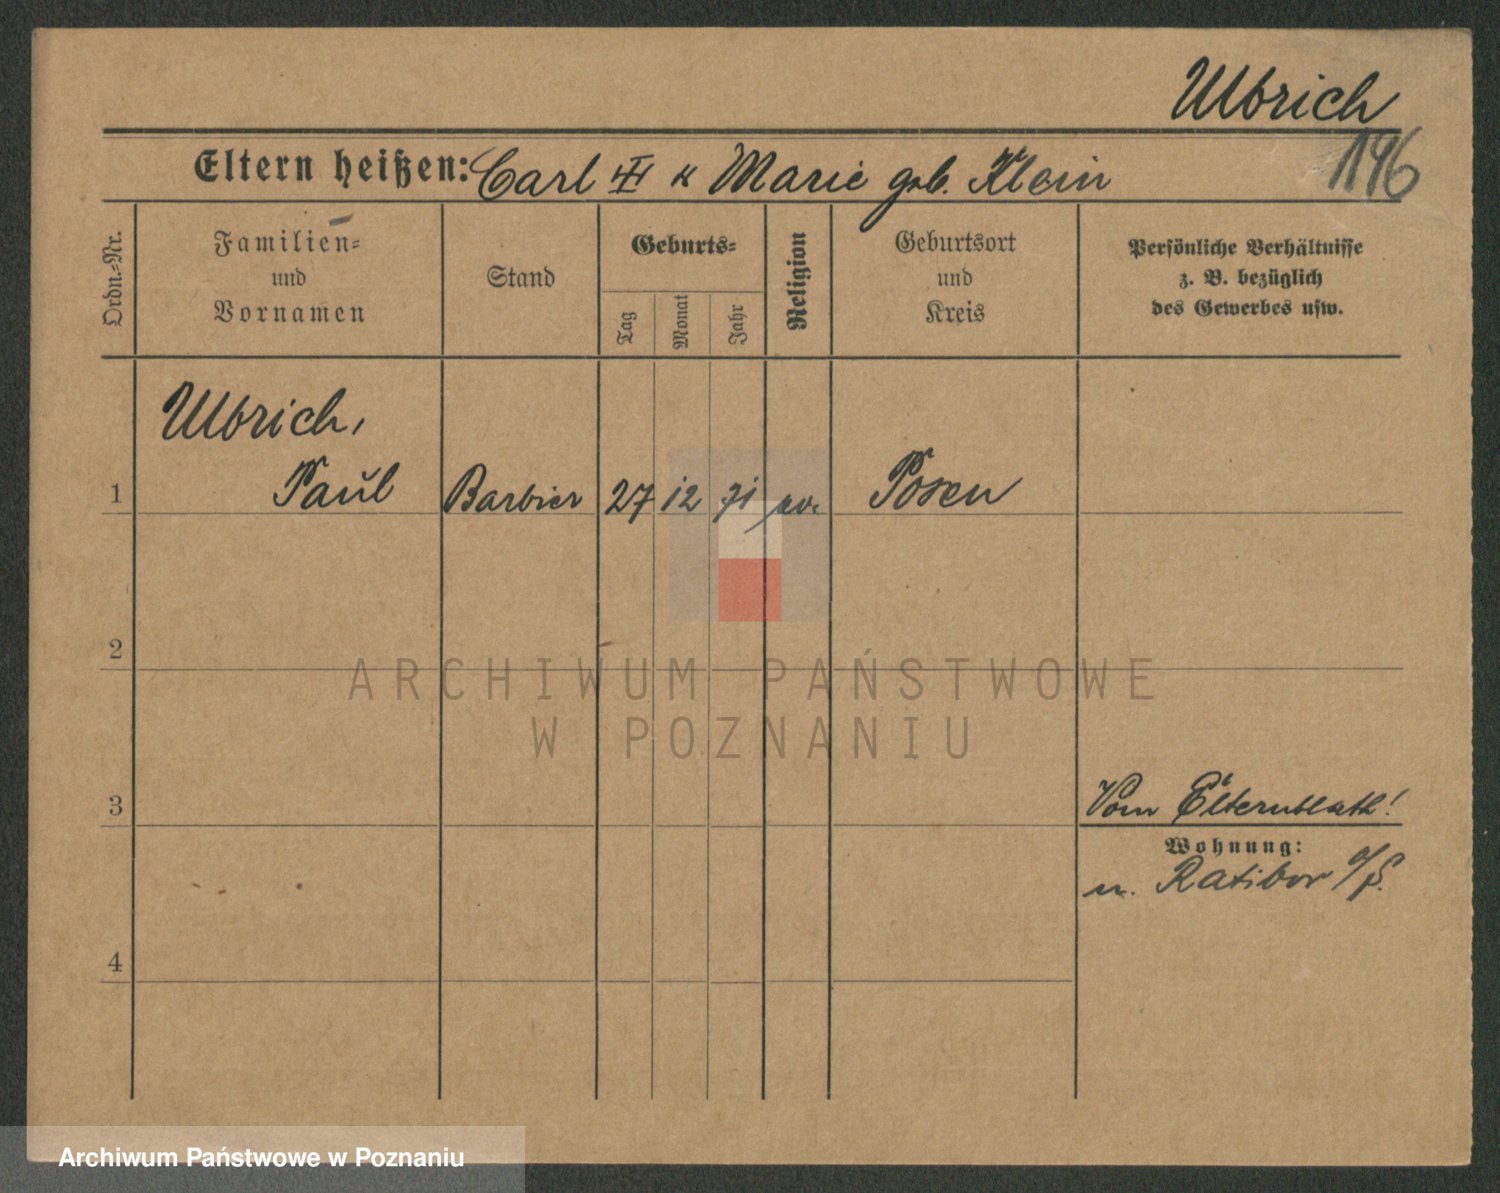 Ulbrich
196
Eltern heißen: Carl u Marie geb. Klein
Ordn.-Nr.
Familien-
und
Vornamen
Stand
Geburts-
Tag
Monat
Jahr
Religion
Geburtsort
und
Kreis
Persönliche Verhältnisse
z. B. bezüglich
des Gewerbes usw.
Ulbrich,
1 Paul Barbier 27 12 71 ev. Posen
2
ARCHIWUM PAŃSTWOWE
W POZNANIU
3
Vom Elternblatt!
Wohnung:
n. Ratibor o/S.
4
Archiwum Państwowe w Poznaniu